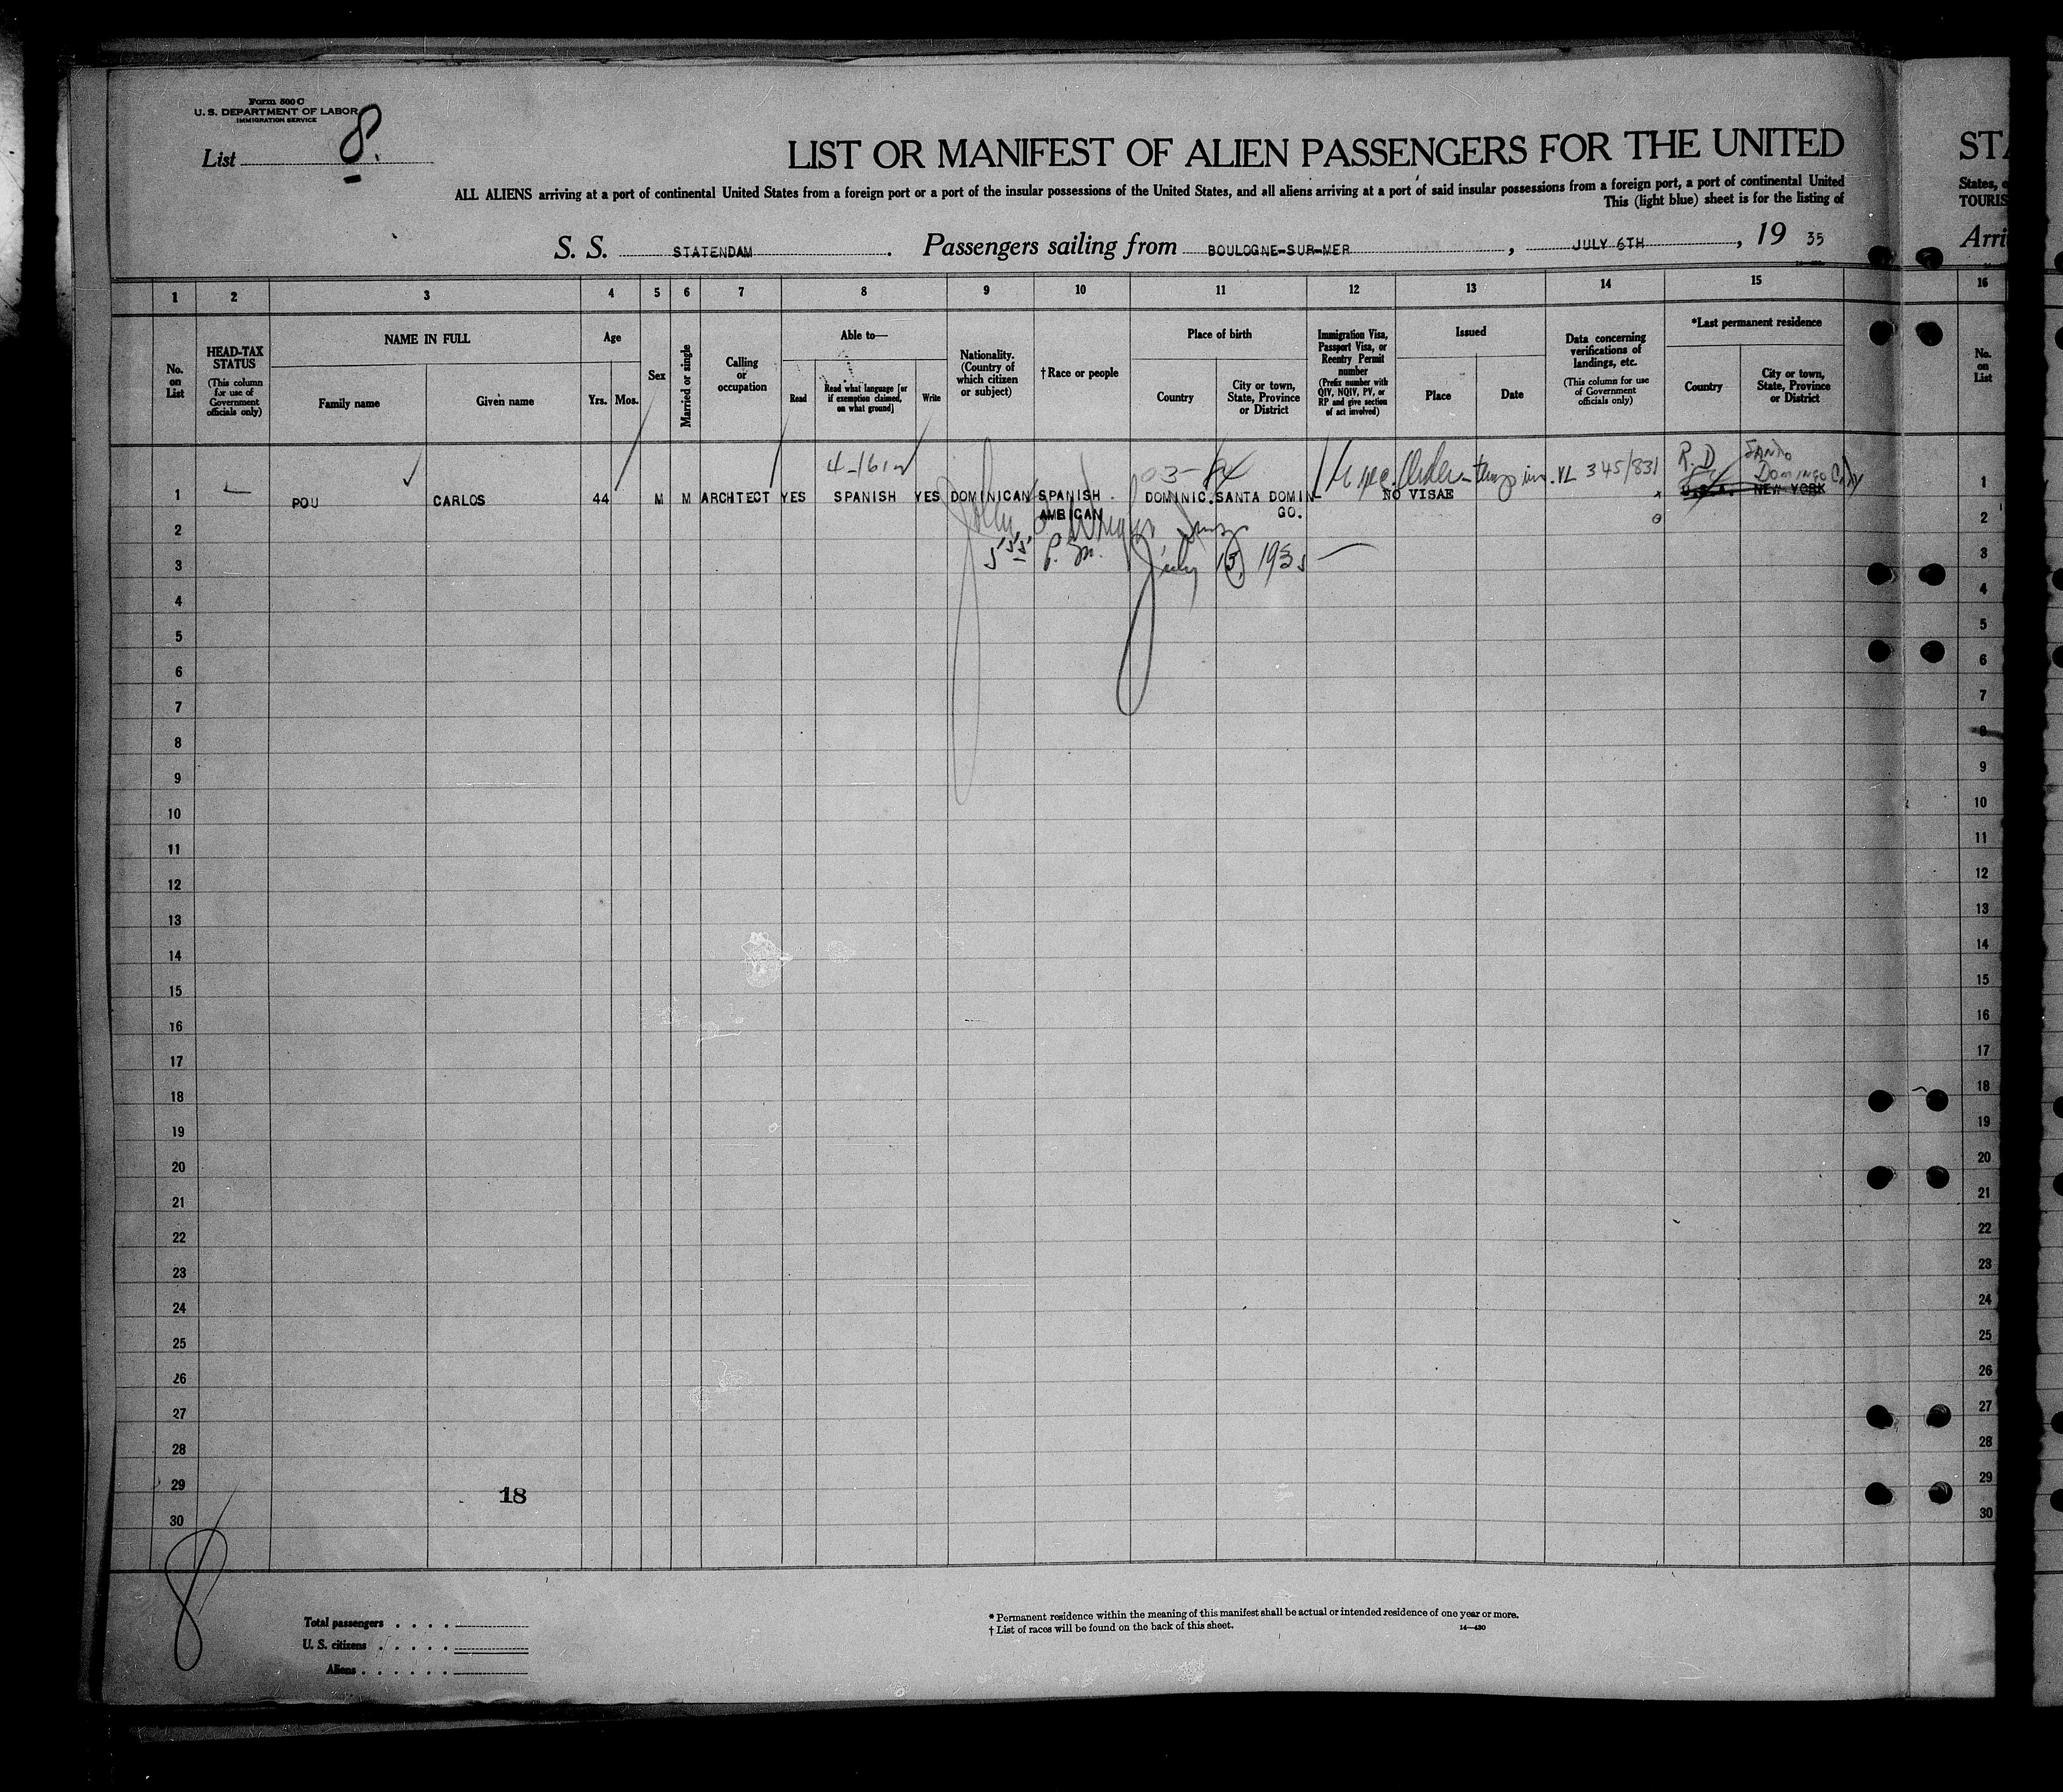 Form 500 C
U. S. DEPARTMENT OF LABOR
IMMIGRATION SERVICE
List 8.
LIST OR MANIFEST OF ALIEN PASSENGERS FOR THE UNITED
STA
ALL ALIENS arriving at a port of continental United States from a foreign port or a port of the insular possessions of the United States, and all aliens arriving at a port of said insular possessions from a foreign port, a port of continental United
States, o
This (light blue) sheet is for the listing of
TOURIS
S. S. STATENDAM. Passengers sailing from BOULOGNE-SUR-MER, JULY 6TH, 19 35
Arri
1 2 3 4 5 6 7 8 9 10 11 12 13 14 15 16
No. on List
HEAD-TAX STATUS
(This column for use of Government officials only)
NAME IN FULL
Family name
Given name
Age
Yrs. Mos.
Sex
Married or single
Calling or occupation
Able to—
Read
Read what language [or if exemption claimed, on what ground]
Write
Nationality. (Country of which citizen or subject)
†Race or people
Place of birth
Country
City or town, State, Province or District
Immigration Visa, Passport Visa, or Reentry Permit number
(Prefix number with QIV, NQIV, PV, or RP and give section of act involved)
Issued
Place
Date
Data concerning verifications of landings, etc.
(This column for use of Government officials only)
*Last permanent residence
Country
City or town, State, Province or District
No. on List
03-
VL 345/831
R.D
SANTO
DOMINGO City
1 POU CARLOS 44 M M ARCHITECT YES SPANISH YES DOMINICAN SPANISH DOMINIC. SANTA DOMIN- NO VISAE U.S.A. NEW YORK 1
AMERICAN GO.
2 2
P. M. July 13, 1935
3 3
4 4
5 5
6 6
7 7
8 8
9 9
10 10
11 11
12 12
13 13
14 14
15 15
16 16
17 17
18 18
19 19
20 20
21 21
22 22
23 23
24 24
25 25
26 26
27 27
28 28
29 29
18
30 30
8
Total passengers
U. S. citizens
Aliens
* Permanent residence within the meaning of this manifest shall be actual or intended residence of one year or more.
† List of races will be found on the back of this sheet.
14—430